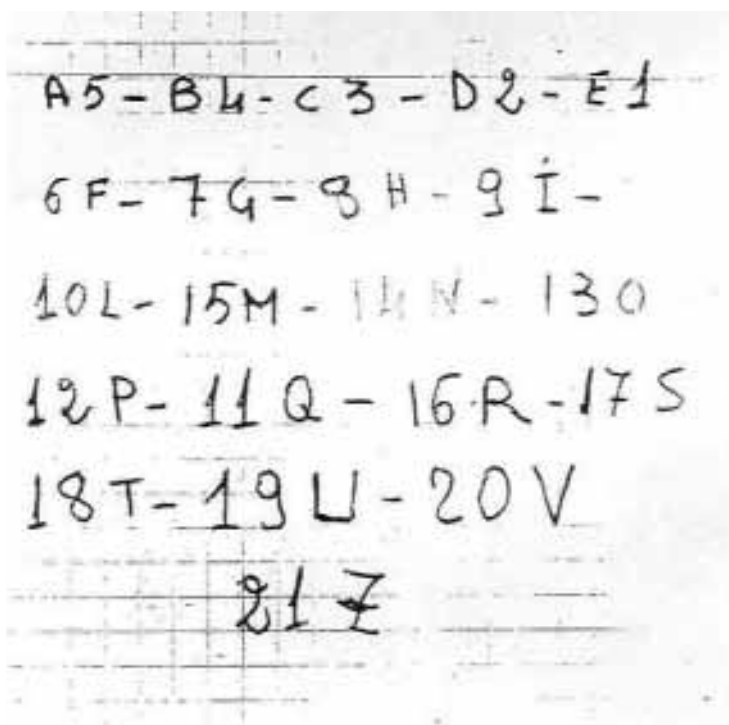 A5-B4-C3-D2-E1
6F-7G-8H-9İ-
10L-15M-14N-13O
12P-11Q-16R-17S
18T-19U-20V
21Z